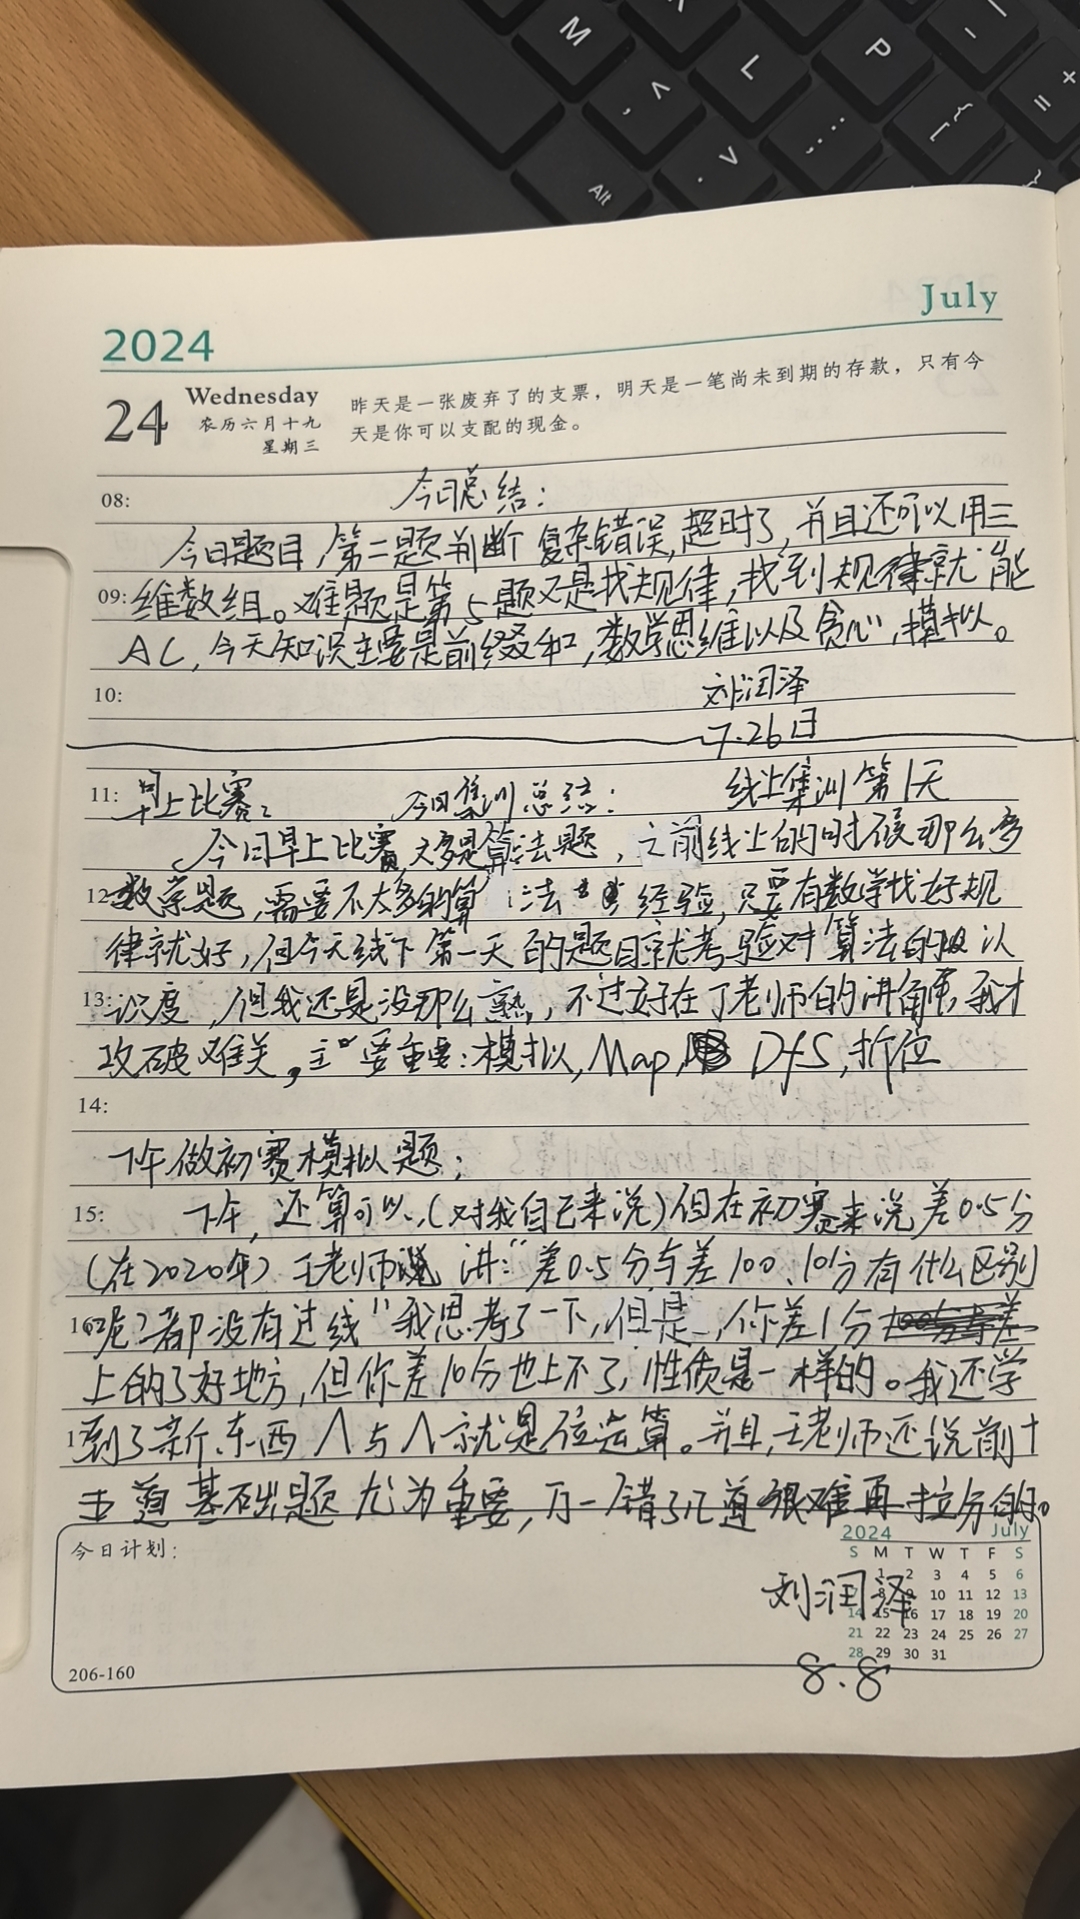 M
P
L
Alt
July
2024
24
Wednesday
农历六月十九
星期三
昨天是一张废弃了的支票，明天是一笔尚未到期的存款，只有今
天是你可以支配的现金。
08:
今日总结：
今日题目，第二题判断复杂错误，超时了，并且还可以用三
09:
维数组。难题是第5题又是找规律，找到规律就能
AC，今天知识主要是前缀和，数学思维以及贪心，模拟。
10:
刘润泽
7.26日
11:
早上比赛：
今日集训总结：
线上集训第1天
今日早上比赛，大多是算法题，之前线上的时候那么多
12
数学题，需要不太多的算法 经验，只要有数学找好规
律就好，但今天线下第一天的题目就考验对算法的 认
13:
识度，但我还是没那么熟，不过好在了老师的讲解，我才
攻破难关，主要重要：模拟，Map，DfS，折位
14:
下午做初赛模拟题：
15:
下午，还算可以，（对我自己来说）但在初赛来说差0.5分
（在2020年）王老师 讲：“差0.5分与差100、10分有什么区别
1
呢？都没有过线”我思考了一下，但是，你差1分
上的了好地方，但你差10分也上不了，性质是一样的。我还学
1
到了新东西 ∧与∧就是位运算。并且，王老师还说前十
五道基础题尤为重要，万一错了几道很难再拉分的。
今日计划：
刘润泽
8.8
2024 July
S M T W T F S
1 2 3 4 5 6
7 8 9 10 11 12 13
14 15 16 17 18 19 20
21 22 23 24 25 26 27
28 29 30 31
206-160